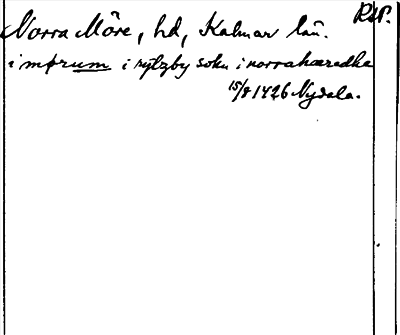 RAP.
Norra Möre, hd, Kalmar län.
i mørum i rytzby sokn i norrahæredhe
15/8 1426 Nydala.